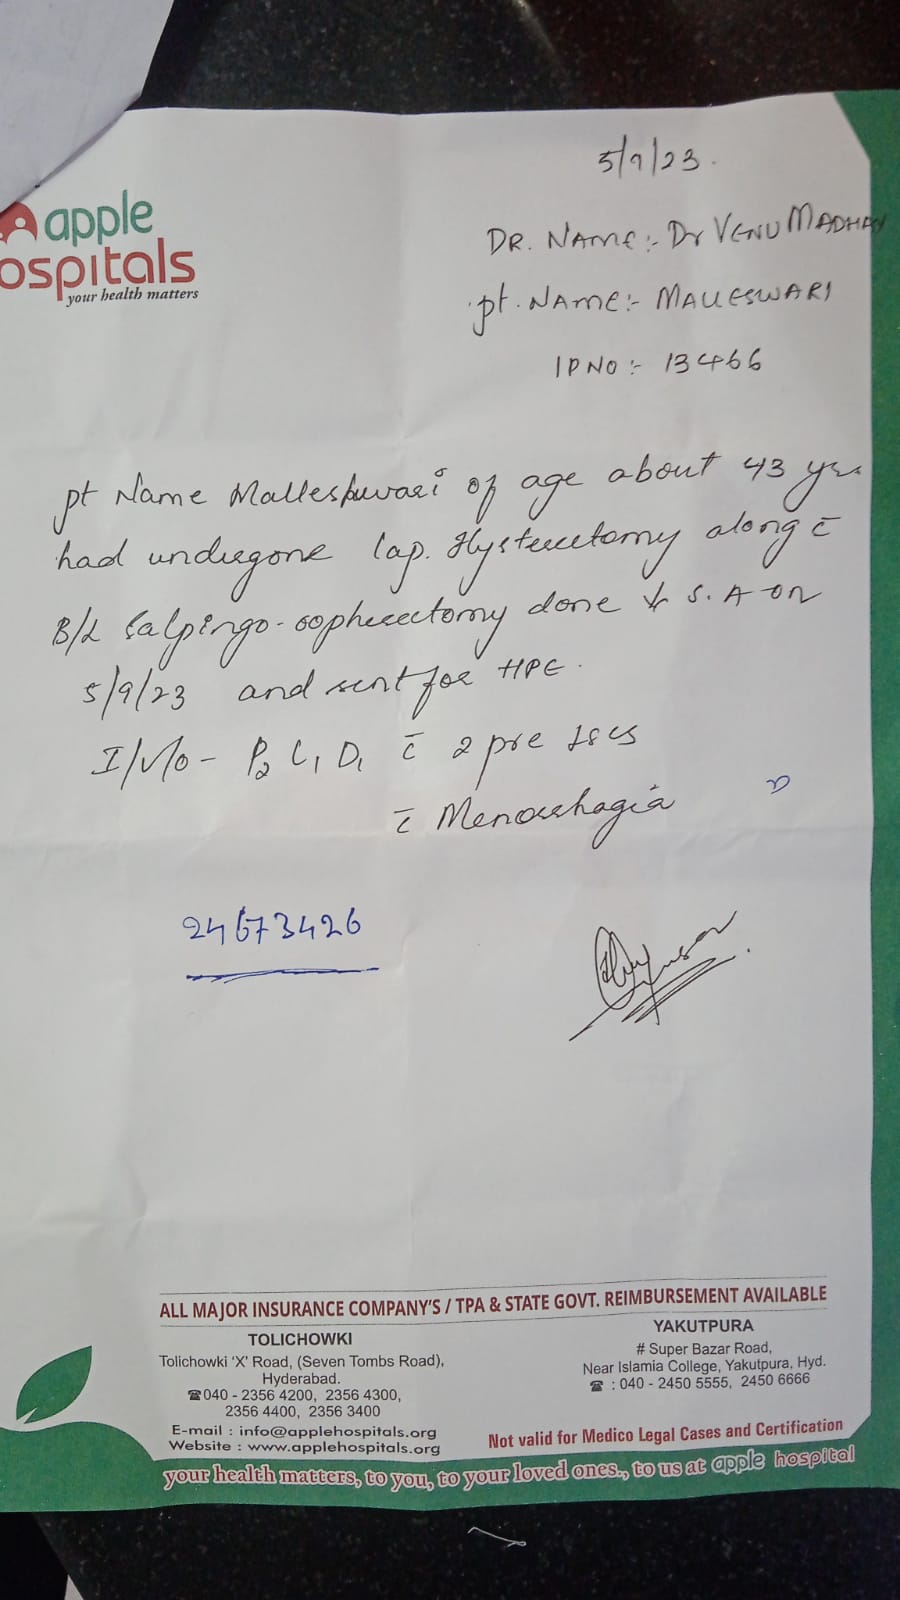 5/9/23.
apple
ospitals
your health matters
DR. NAME:- Dr VENU MADHAV
pt. NAME:- MALLESWARI
IPNO:- 13466
pt Name Malleshwari of age about 43 yrs
had undergone lap. Hysterectomy along c̄
B/L Salpingo-oopherectomy done S.A on
5/9/23 and sent for HPE.
I/v/o - P2 L1 D1 c̄ 2 pre LSCS
c̄ Menorrhagia
24673426
ALL MAJOR INSURANCE COMPANY'S / TPA & STATE GOVT. REIMBURSEMENT AVAILABLE
TOLICHOWKI
Tolichowki 'X' Road, (Seven Tombs Road),
Hyderabad.
☎040 - 2356 4200, 2356 4300,
2356 4400, 2356 3400
E-mail : info@applehospitals.org
Website : www.applehospitals.org
YAKUTPURA
# Super Bazar Road,
Near Islamia College, Yakutpura, Hyd.
☎ : 040 - 2450 5555, 2450 6666
Not valid for Medico Legal Cases and Certification
your health matters, to you, to your loved ones., to us at apple hospital